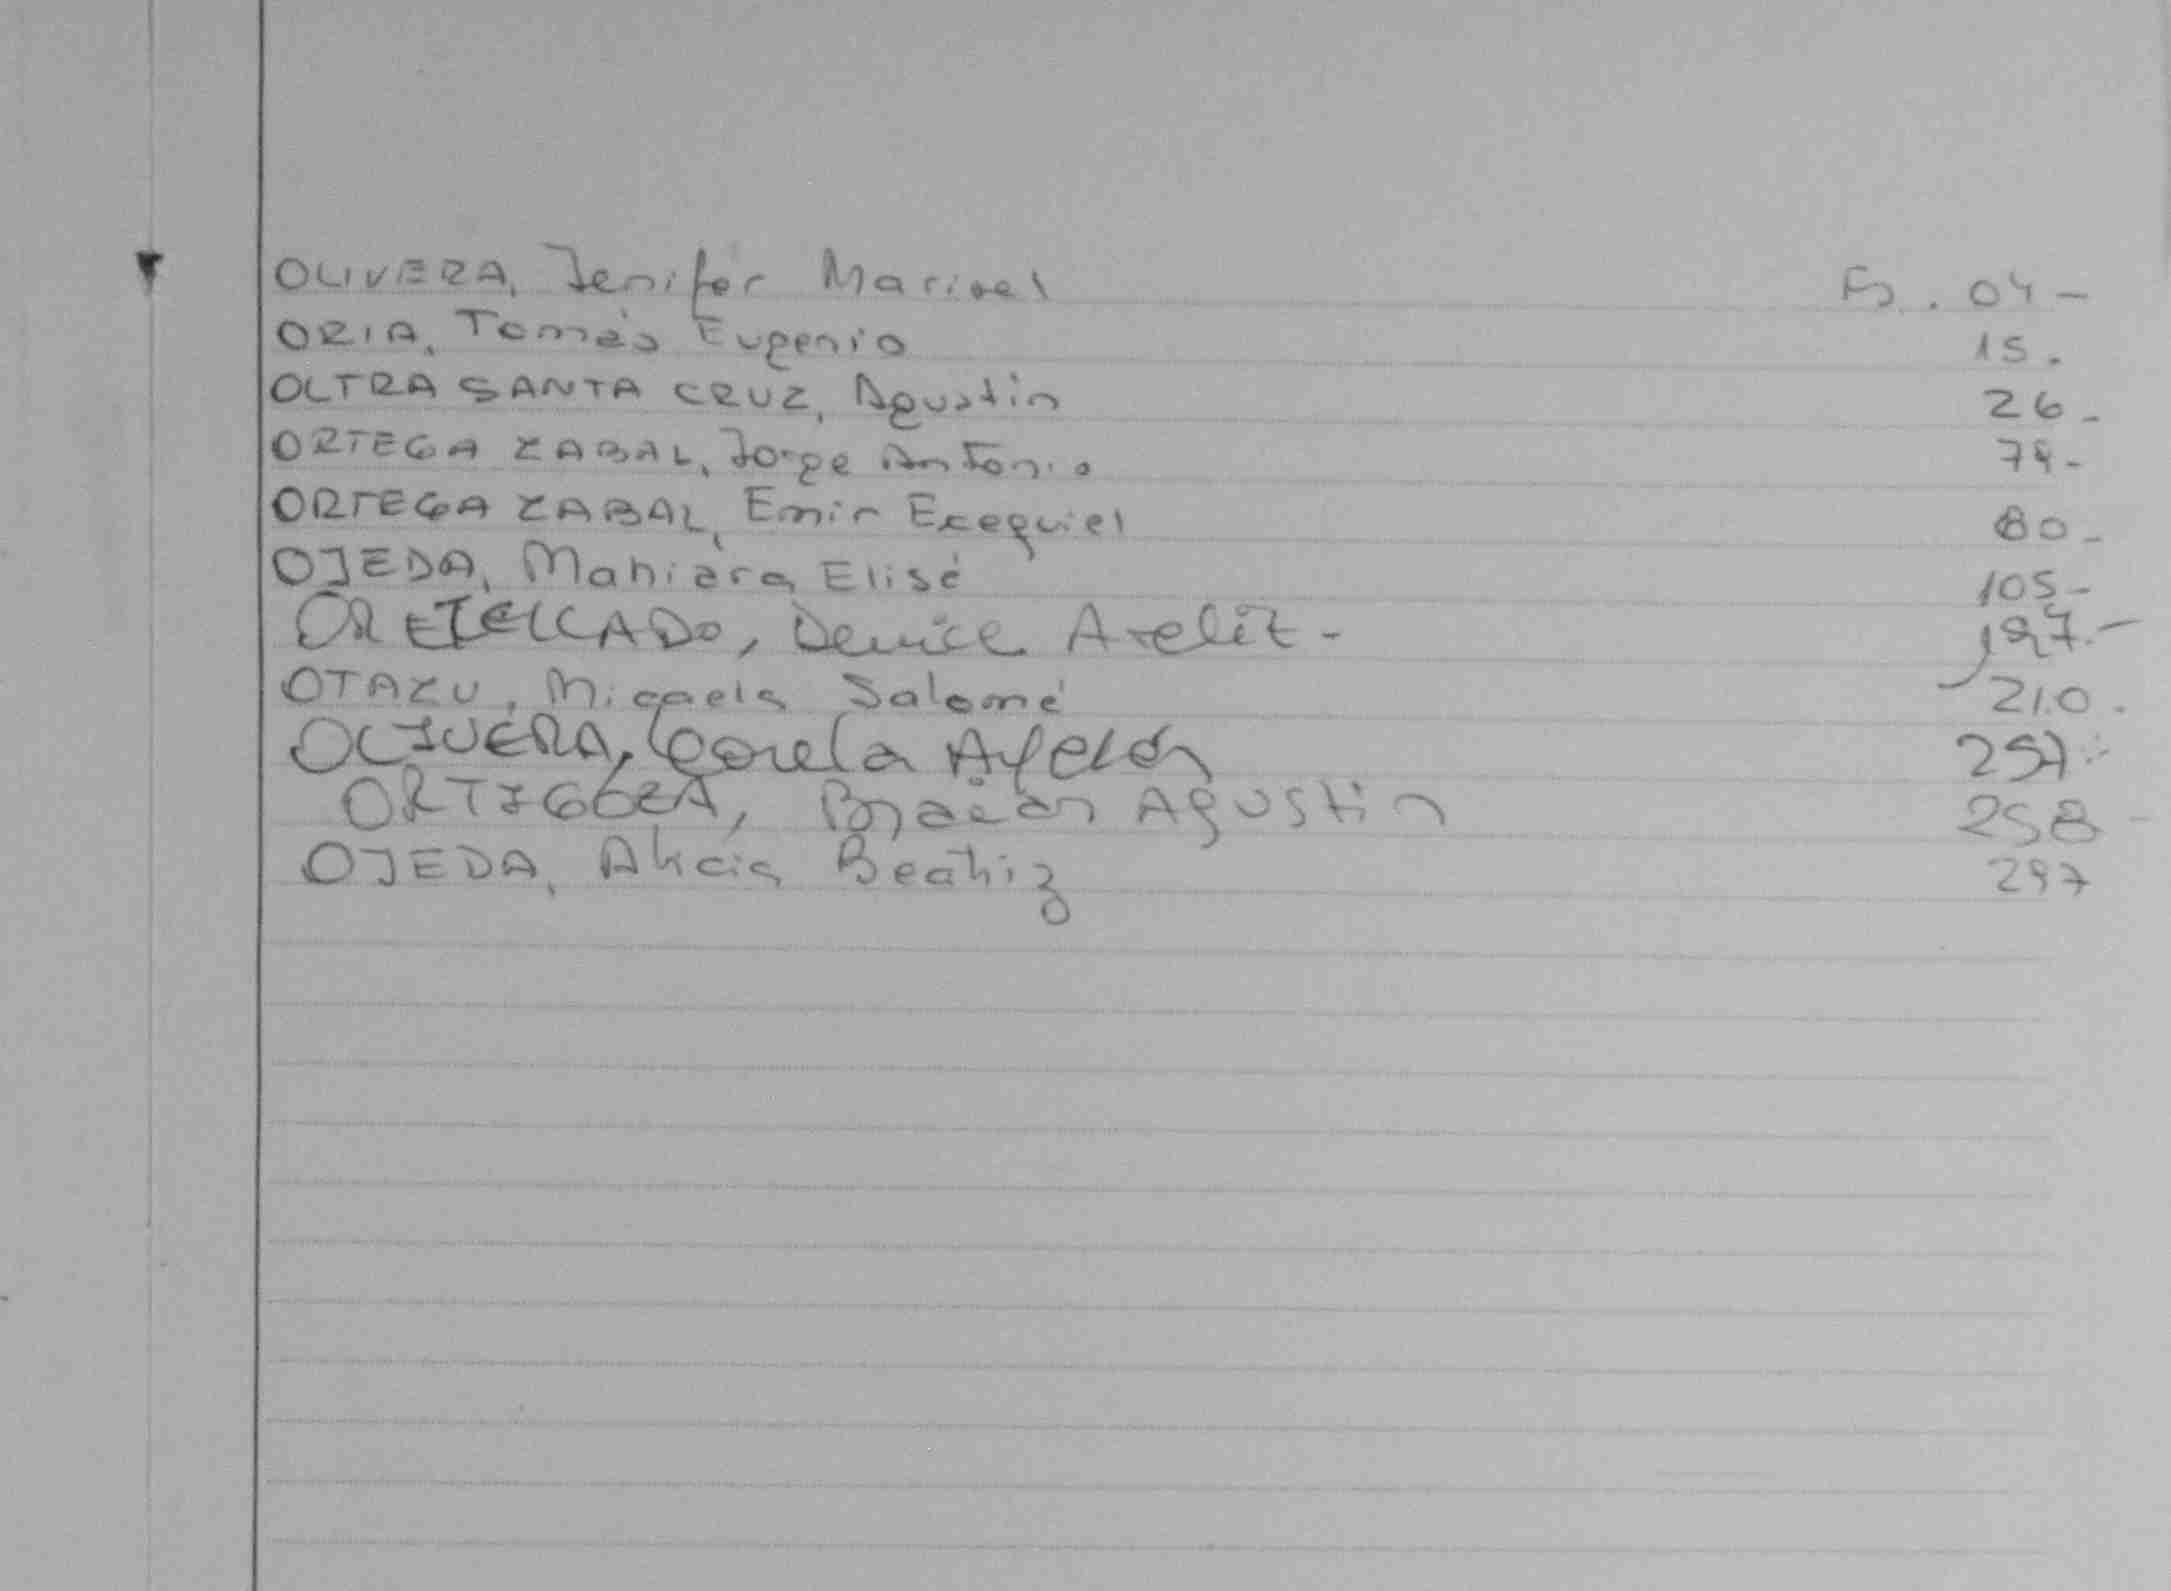 OLIVERA, Jenifer Marisel Fs. 04-
ORIA, Tomás Eugenio 15.
OLTRA SANTA CRUZ, Agustin 26-
ORTEGA ZABAL, Jorge Antonio 79-
ORTEGA ZABAL, Emir Exequiel 80-
OJEDA, Mahiara Elisé 105-
Denise 197.-
OTAZU, Micaela Salomé 210.
OLIVERA, 257.-
ORTIGOZA, Agustin 258-
OJEDA, Alicia Beatriz 297